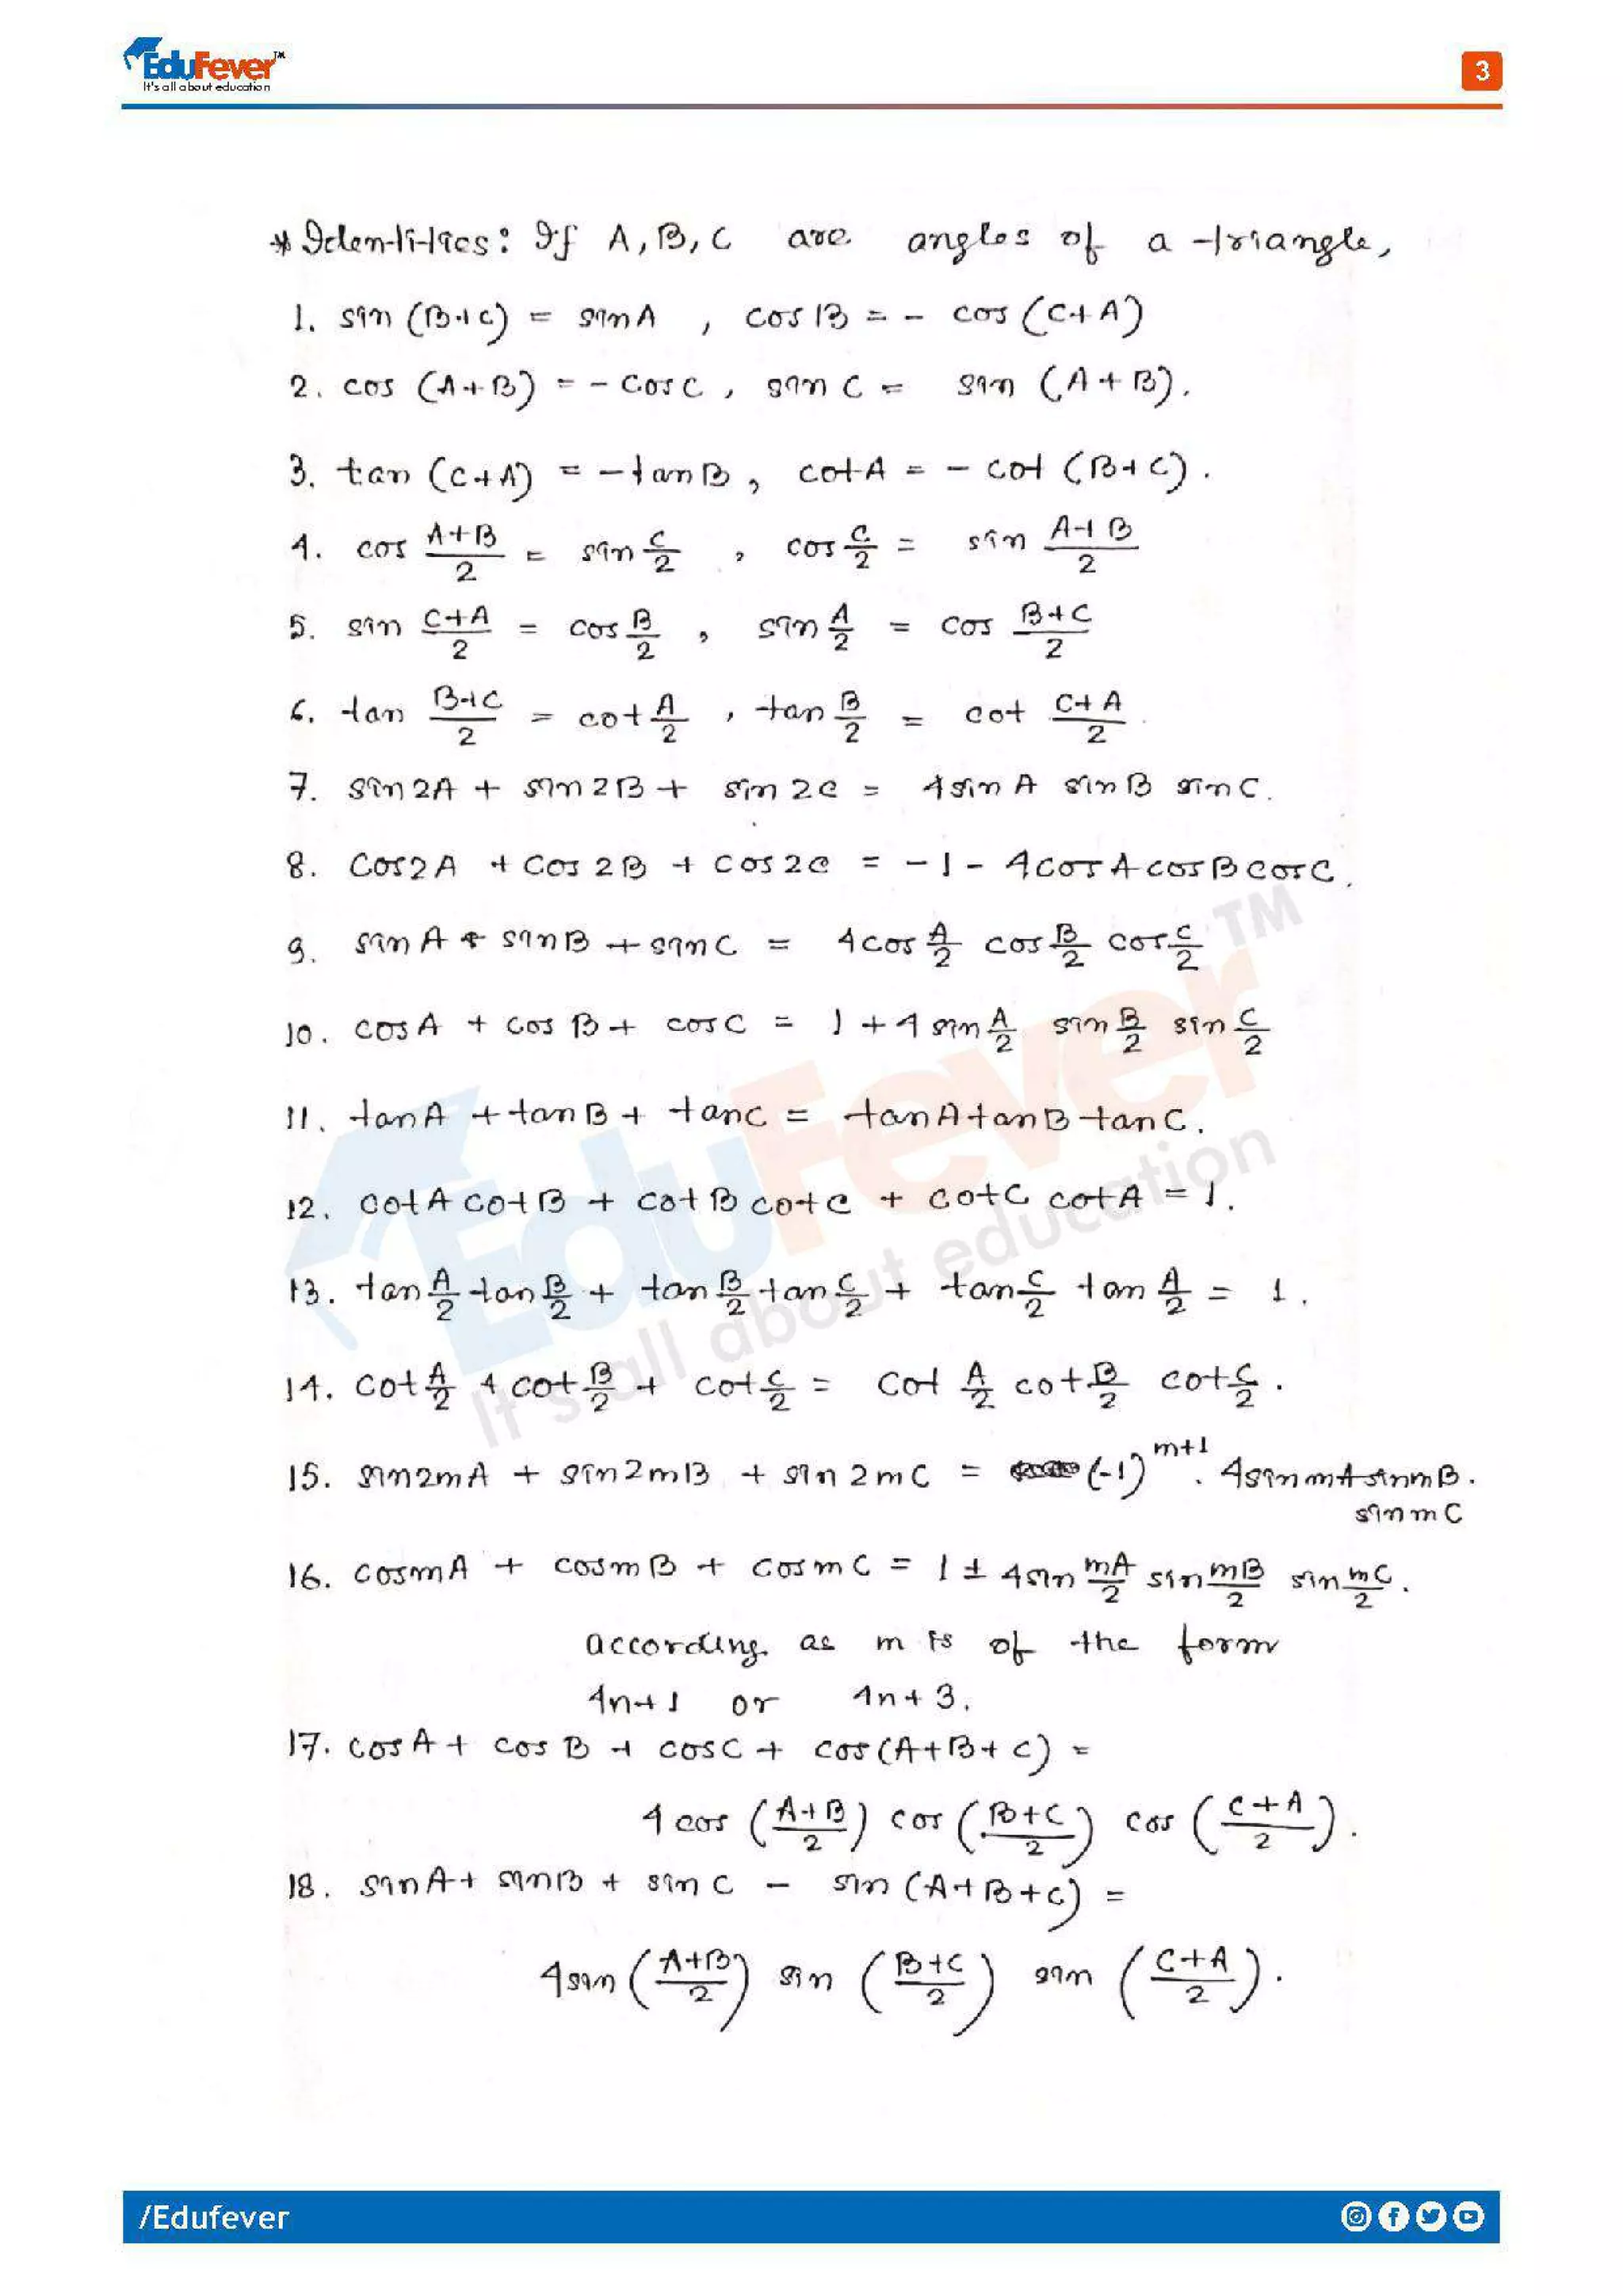 EduFever™
It's all about education
3
* Identities: If A, B, C are angles of a triangle,
1. sin (B+C) = sin A , cos B = - cos (C+A)
2. cos (A+B) = - cos C , sin C = sin (A+B).
3. tan (C+A) = - tan B , cot A = - cot (B+C).
4. cos A+B/2 = sin C/2 , cos C/2 = sin A+B/2
5. sin C+A/2 = cos B/2 , sin A/2 = cos B+C/2
6. tan B+C/2 = cot A/2 , tan B/2 = cot C+A/2
7. sin 2A + sin 2B + sin 2C = 4 sin A sin B sin C.
8. cos 2A + cos 2B + cos 2C = - 1 - 4 cos A cos B cos C.
9. sin A + sin B + sin C = 4 cos A/2 cos B/2 cos C/2
10. cos A + cos B + cos C = 1 + 4 sin A/2 sin B/2 sin C/2
11. tan A + tan B + tan C = tan A tan B tan C.
12. cot A cot B + cot B cot C + cot C cot A = 1.
13. tan A/2 tan B/2 + tan B/2 tan C/2 + tan C/2 tan A/2 = 1.
14. cot A/2 + cot B/2 + cot C/2 = cot A/2 cot B/2 cot C/2.
15. sin 2mA + sin 2mB + sin 2mC = (-1)^m+1 . 4 sin mA sin mB .
sin mC
16. cos mA + cos mB + cos mC = 1 ± 4 sin mA/2 sin mB/2 sin mC/2.
according as m is of the form
4n+1 or 4n+3.
17. cos A + cos B + cos C + cos (A+B+C) =
4 cos (A+B/2) cos (B+C/2) cos (C+A/2).
18. sin A + sin B + sin C - sin (A+B+C) =
4 sin (A+B/2) sin (B+C/2) sin (C+A/2).
EduFever™
It's all about education
/Edufever